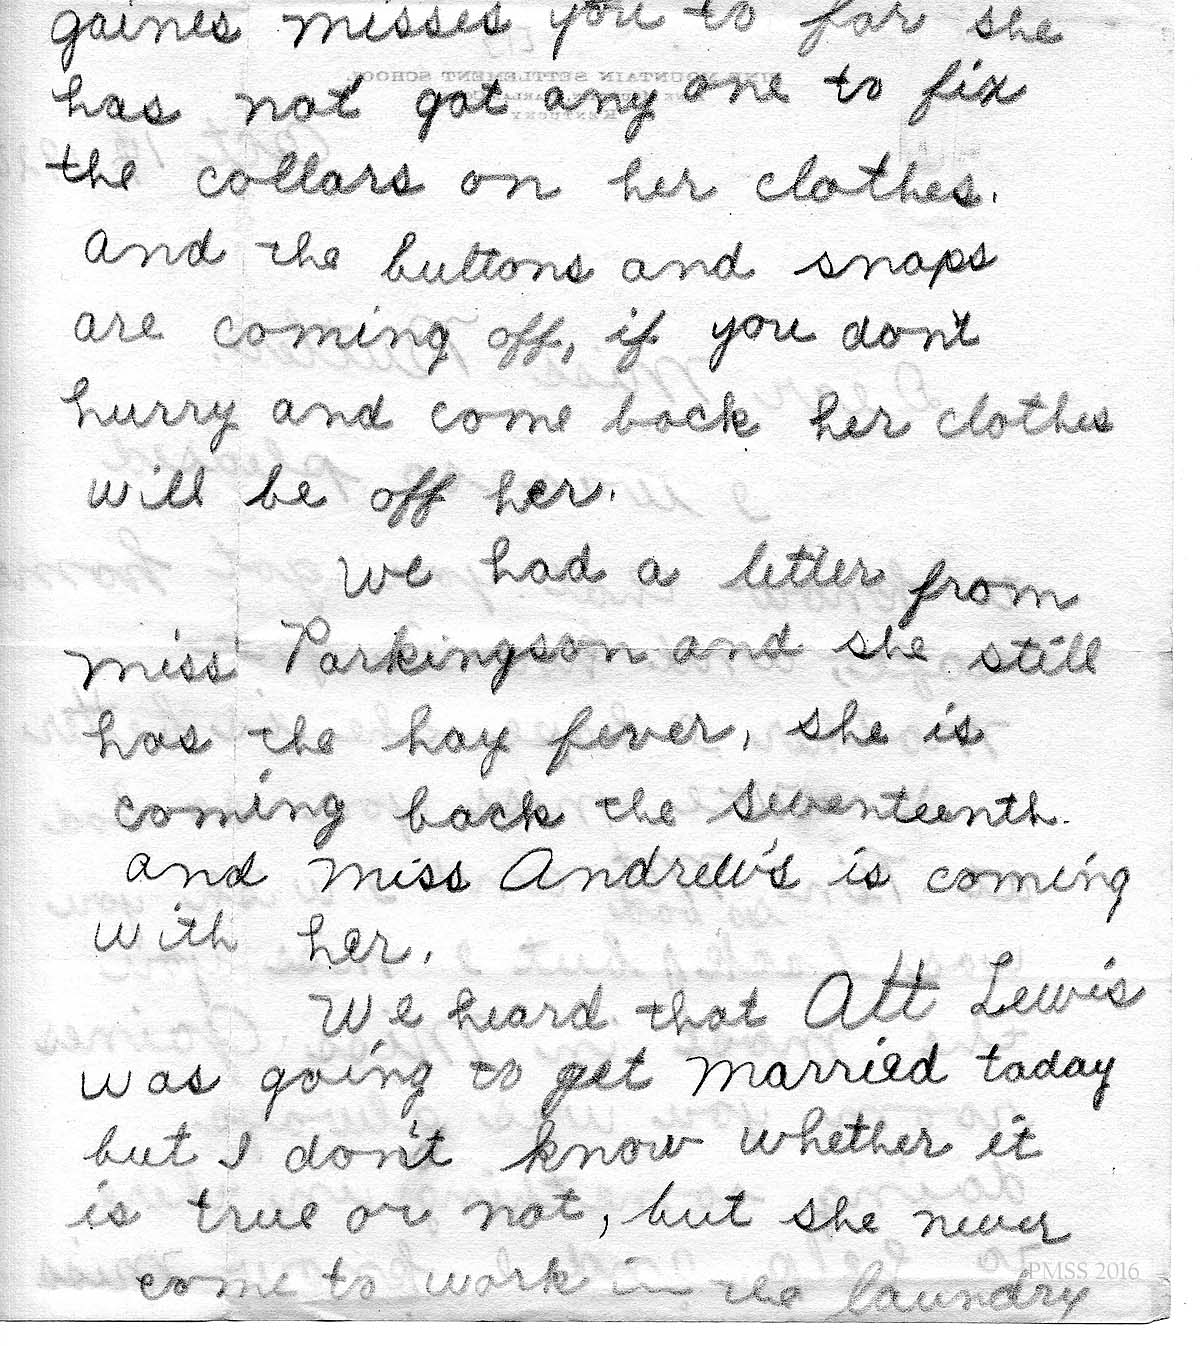 gaines misses you to for she
has not got any one to fix
the collars on her clothes.
and the buttons and snaps
are coming off, if you don't
hurry and come back her clothes
will be off her.
We had a letter from
miss Parkingson and she still
has the hay fever, she is
coming back the seventeenth.
and miss Andrew's is coming
with her.
We heard that Att Lewis
was going to get married today
but I don't know whether it
is true or not, but she never
come to work in the laundry
PMSS 2016